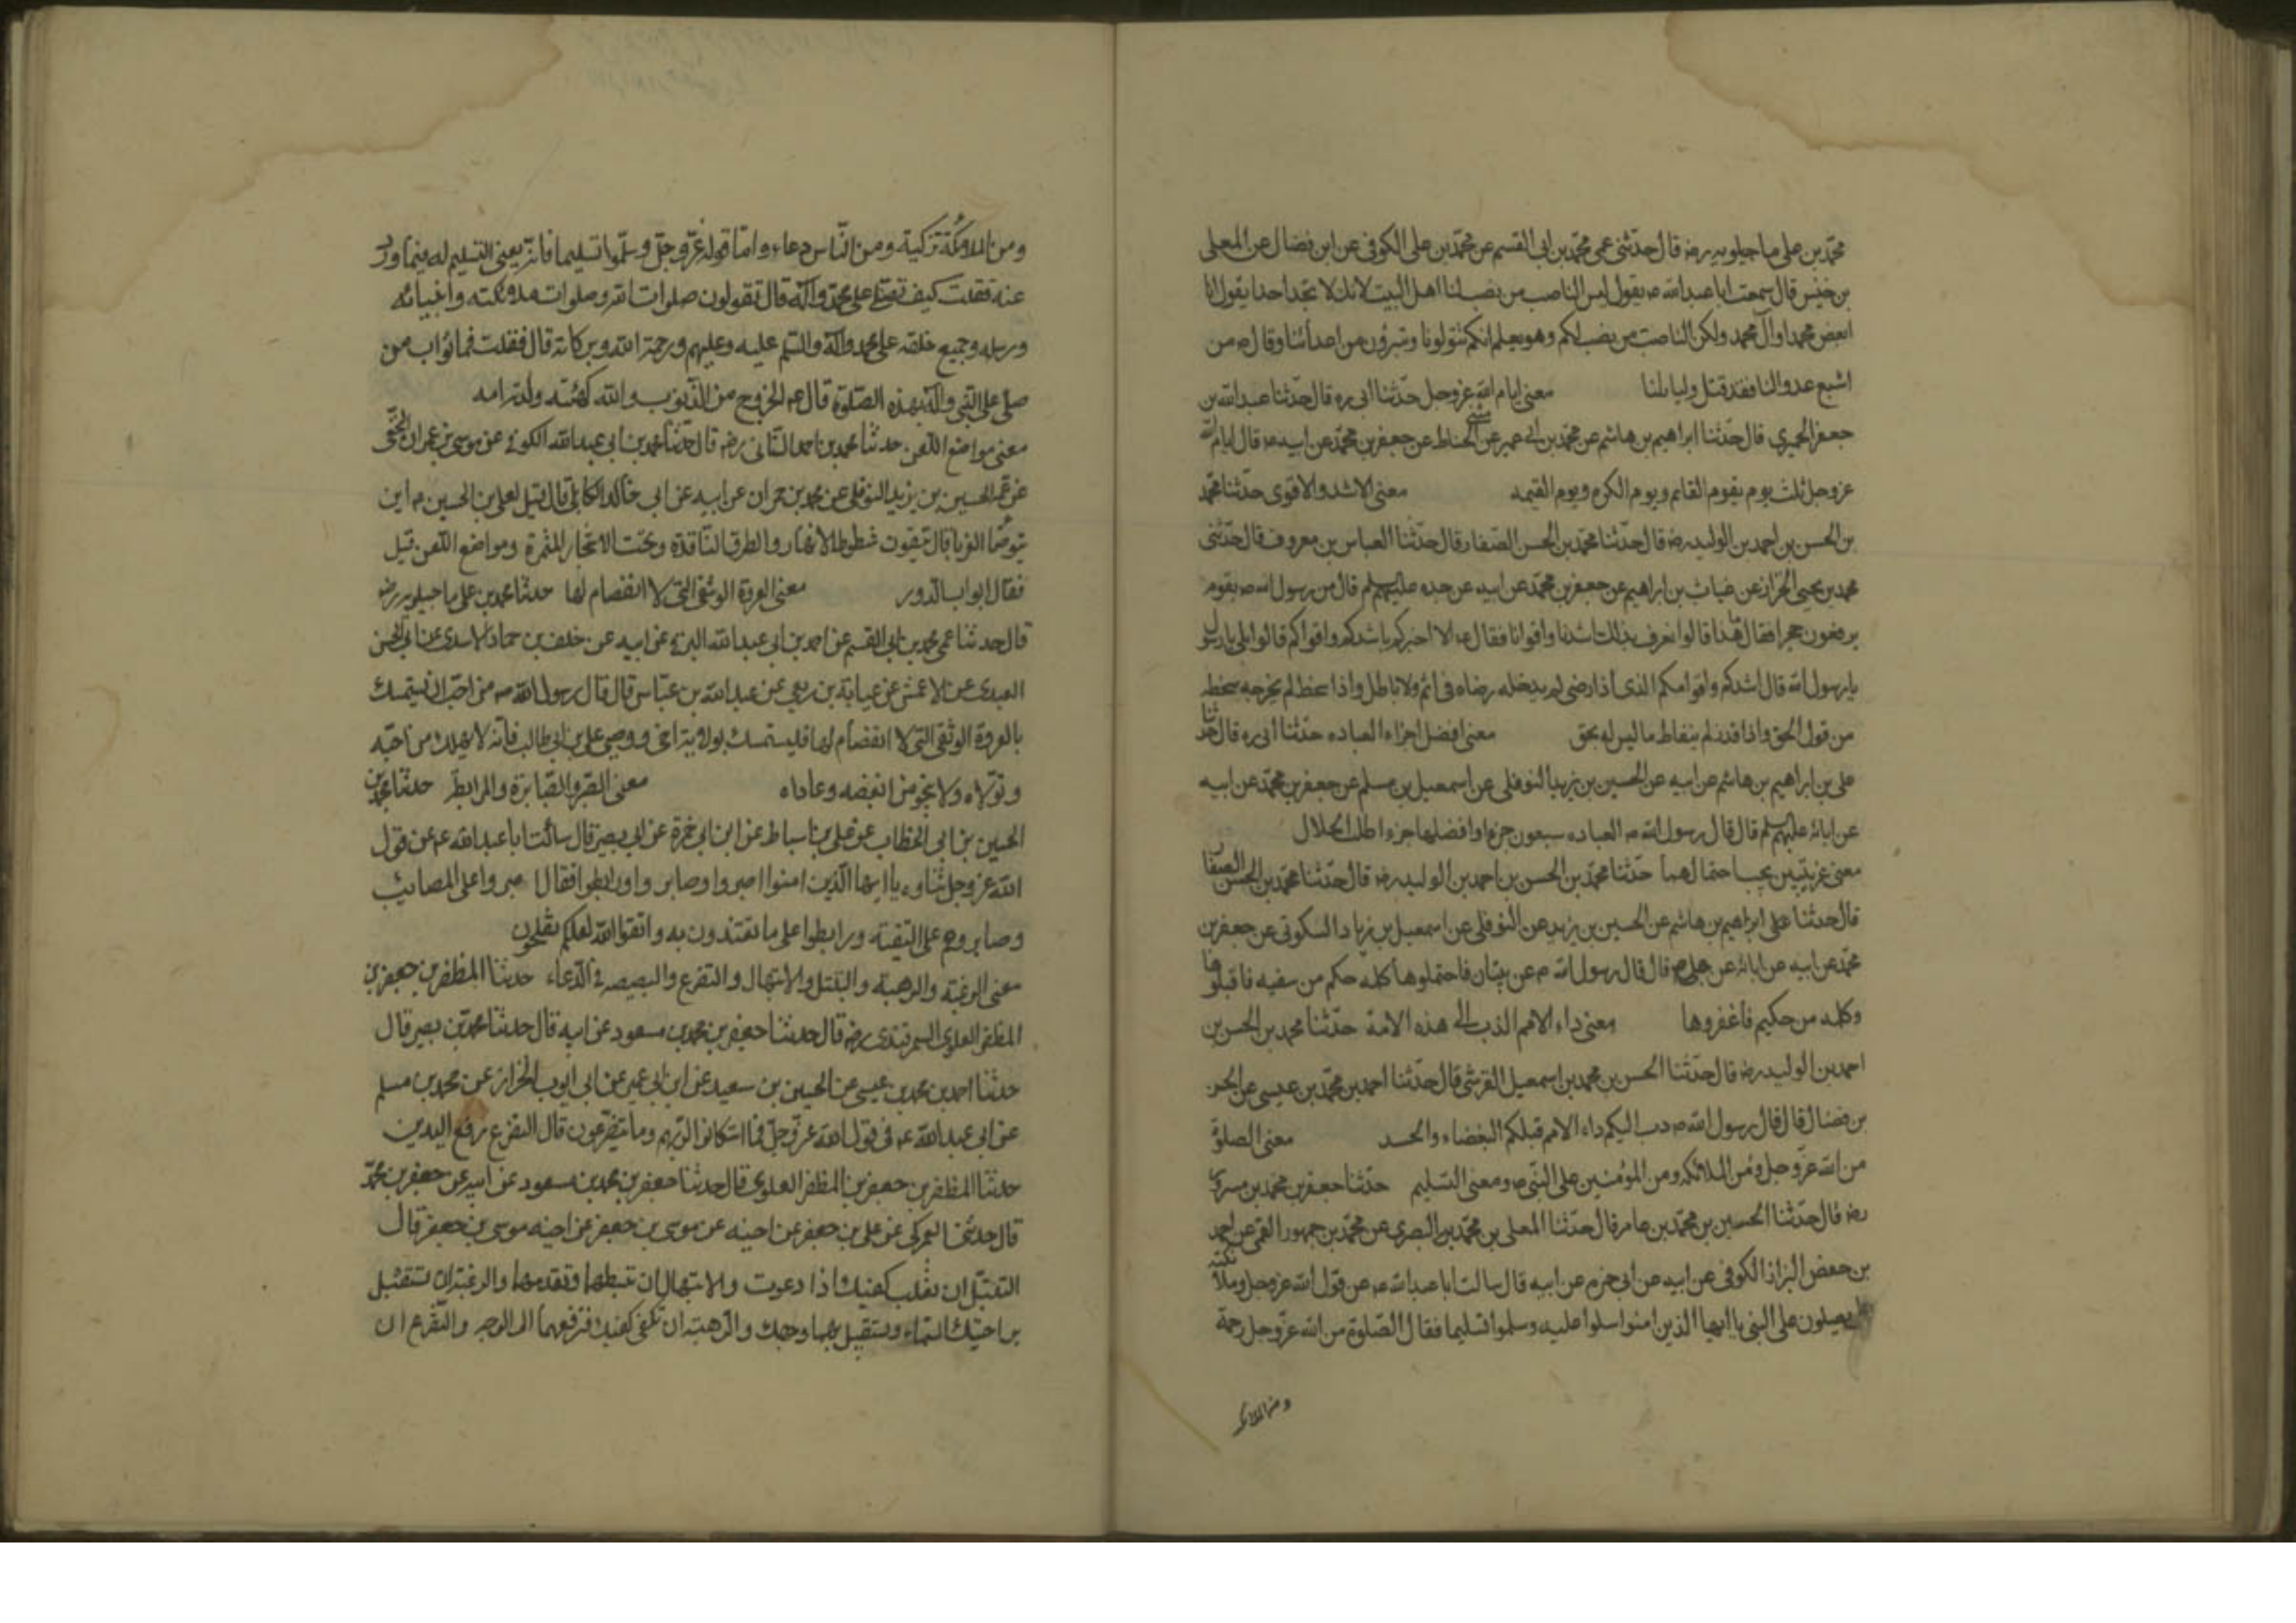 محمد بن علي ماجيلويه رضه قال حدثني عمي محمد بن ابي القسم عن محمد بن علي الكوفي عن ابن فضال عن المعلى
بن خنيس قال سمعت ابا عبد الله ع يقول ليس الناصب من نصب لنا اهل البيت لانك لا تجد احدا يقول انا
ابغض محمدا وآل محمد ولكن الناصب من نصب لكم وهو يعلم انكم تتولونا وتتبرؤن من اعدائنا وقال ع من
اشبع عدوا لنا فقد قتل وليا لنا معنى ايام الله عز وجل حدثنا ابي ره قال حدثنا عبد الله بن
جعفر الحميري قال حدثنا ابراهيم بن هاشم عن محمد بن ابي عمير عن مثنى الحناط عن جعفر بن محمد عن ابيه ع قال ايام الله
عز وجل ثلث يوم يقوم القايم ويوم الكرة ويوم القيمه معنى الاشد والاقوى حدثنا محمد
بن الحسن بن احمد بن الوليد رضه قال حدثنا محمد بن الحسن الصفار قال حدثنا العباس بن معروف قال حدثني
محمد بن يحيى الخزاز عن غياث بن ابراهيم عن جعفر بن محمد عن ابيه عن جده عليهم قال من رسول الله ص بقوم
يرفعون حجرا فقال ما هذا قالوا نعرف بذلك اشدنا واقوانا فقال ع الا اخبركم باشدكم واقواكم قالوا بلى يا رسول
يا رسول الله قال اشدكم واقواكم الذى اذا رضى لم يدخله رضاه فى اثم ولا باطل واذا سخط لم يخرجه سخطه
من قول الحق واذا قدر لم يتعاط ما ليس له بحق معنى افضل اجزاء العباده حدثنا ابي ره قال حدثنا
على بن ابراهيم بن هاشم عن ابيه عن الحسين بن يزيد النوفلى عن اسمعيل بن مسلم عن جعفر بن محمد عن ابيه
عن ابائه عليهم قال قال رسول الله ص العباده سبعون جزءا وافضلها جزءا طلب الحلال
معنى غريبتين يجب احتمالهما حدثنا محمد بن الحسن بن احمد بن الوليد رضه قال حدثنا محمد بن الحسن الصفار
قال حدثنا على ابراهيم بن هاشم عن الحسين بن يزيد عن النوفلى عن اسمعيل بن زياد السكونى عن جعفر بن
محمد عن ابيه عن ابائه عن على ع قال قال رسول الله ص غريبتان فاحتملوها كلمه حكم من سفيه فاقبلوها
وكلمه من حكيم فاغفروها معنى داء الامم الذى دب الى هذه الامة حدثنا محمد بن الحسن بن
احمد بن الوليد رضه قال حدثنا الحسن بن محمد بن اسمعيل القرشى قال حدثنا احمد بن محمد بن عيسى عن الحسن
بن فضال قال قال رسول الله ص دب اليكم داء الامم قبلكم البغضاء والحسد معنى الصلوة
من الله عز وجل ومن الملائكه ومن المؤمنين على النبى ص ومعنى التسليم حدثنا جعفر بن محمد بن مسرور
رضه قال حدثنا الحسين بن محمد بن عامر قال حدثنا المعلى بن محمد البصرى عن محمد بن جمهور القمى عن احمد
بن حفص البزاز الكوفى عن ابيه عن ابى حمزه عن ابيه قال سالت ابا عبد الله ع عن قول الله عز وجل وملائكته
يصلون على النبى يا ايها الذين امنوا صلوا عليه وسلموا تسليما فقال الصلوة من الله عز وجل رحمة
ومن الملائكه
ومن الملائكة تزكية ومن الناس دعاء واما قوله عز وجل وسلموا تسليما فانه يعنى التسليم له فيما ورد
عنه فقلت كيف نصلى على محمد وآله قال تقولون صلوات الله وصلوات ملائكته وانبيائه
ورسله وجميع خلقه على محمد وآله والسلم عليه وعليهم ورحمة الله وبركاته قال فقلت فما ثواب من
صلى على النبى وآله بهذه الصلوة قال ع الخروج من الذنوب والله كهيئته ولدته امه
معنى مواضع اللعن حدثنا محمد بن احمد السنانى رضه قال حدثنا محمد بن ابى عبد الله الكوفى عن موسى بن عمران النخعى
عن عمه الحسين بن يزيد النوفلى عن محمد بن حمران عن ابيه عن ابى خالد الكابلى قال قيل لعلى بن الحسين ع اين
يتوضأ الغربا قال يتقون شطوط الانهار والطرق النافذة وتحت الاشجار المثمرة ومواضع اللعن قيل
فقال ابواب الدور معنى العروة الوثقى التى لا انفصام لها حدثنا محمد بن على ماجيلويه رضه
قال حدثنا عمى محمد بن ابى القسم عن احمد بن ابى عبد الله البرقى عن ابيه عن خلف بن حماد الاسدى عن ابى الحسن
العبدى عن الاعمش عن عباية بن ربعى عن عبد الله بن عباس قال قال رسول الله ص من احب ان يستمسك
بالعروة الوثقى التى لا انفصام لها فليستمسك بولاية اخى ووصيى على بن ابى طالب فانه لا يهلك من احبه
وتولاه ولا ينجو من ابغضه وعاداه معنى الصبر والمصابرة والمرابطة حدثنا محمد بن
الحسين بن ابى الخطاب عن على بن اسباط عن ابن ابى حمزة عن ابى بصير قال سالت ابا عبد الله ع عن قول
الله عز وجل ثناؤه يا ايها الذين امنوا اصبروا وصابروا ورابطوا فقال اصبروا على المصايب
وصابروهم على التقية ورابطوا على ما تقتدون به واتقوا الله لعلكم تفلحون
معنى الرغبة والرهبة والتبتل والابتهال والتضرع والبصبصه فى الدعاء حدثنا المظفر بن جعفر بن
المظفر العلوى السمرقندى رضه قال حدثنا جعفر بن محمد بن مسعود عن ابيه قال حدثنا محمد بن نصير قال
حدثنا احمد بن محمد بن عيسى عن الحسين بن سعيد عن ابن ابى عمير عن ابى ايوب الخزاز عن محمد بن مسلم
عن ابى عبد الله ع فى قول الله عز وجل فما استكانوا لربهم وما يتضرعون قال التضرع رفع اليدين
حدثنا المظفر بن جعفر بن المظفر العلوى قال حدثنا جعفر بن محمد بن مسعود عن ابيه عن جعفر بن محمد
قال حدثنى العمركى عن على بن جعفر عن اخيه عن موسى بن جعفر عن اخيه موسى بن جعفر قال
التبتل ان تقلب كفيك اذا دعوت والابتهال ان تبسطها وتقدمها والرغبة ان تستقبل
براحتيك السماء وتستقبل بهما وجهك والرهبة ان تكفى كفيك فترفعهما الى الوجه والتضرع ان